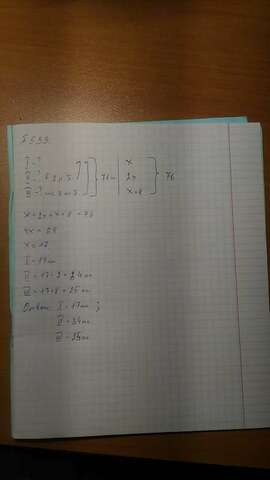 I - ?
II - ? в 2 р >
III - ? на 8 м >
76 м
x
2x
x+8
76
x+2x+x+8=76
4x=68
x=17
I = 17 м
II = 17·2=34 м
III = 17+8=25 м
Ответ: I = 17 м ;
II = 34 м
III = 25 м